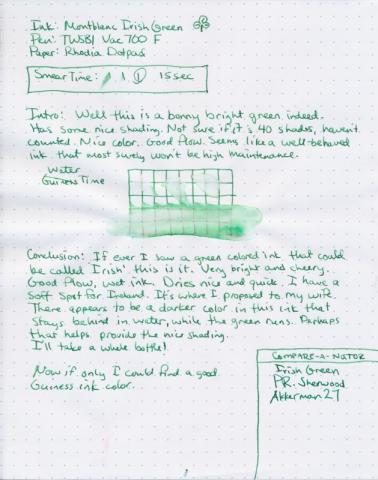 Ink: Montblanc Irish Green
Pen: TWSBI Vac 700 F
Paper: Rhodia Dotpad
Smear Time: 1 15 sec
Intro: Well this is a bonny bright green indeed.
Has some nice shading. Not sure if it's 40 shades, haven't
counted. Nice color. Good flow. Seems like a well-behaved
ink that most surely won't be high maintenance.
Water
Guiness Time
Conclusion: If ever I saw a green colored ink that could
be called 'Irish' this is it. Very bright and cheery.
Good flow, wet ink. Dries nice and quick. I have a
soft spot for Ireland. It's where I proposed to my wife.
There appears to be a darker color in this ink that
stays behind in water, while the green runs. Perhaps
that helps provide the nice shading.
I'll take a whole bottle!
Now if only I could find a good
Guiness ink color.
COMPARE-A-NATOR
Irish Green
P.R. Sherwood
Akkerman 27